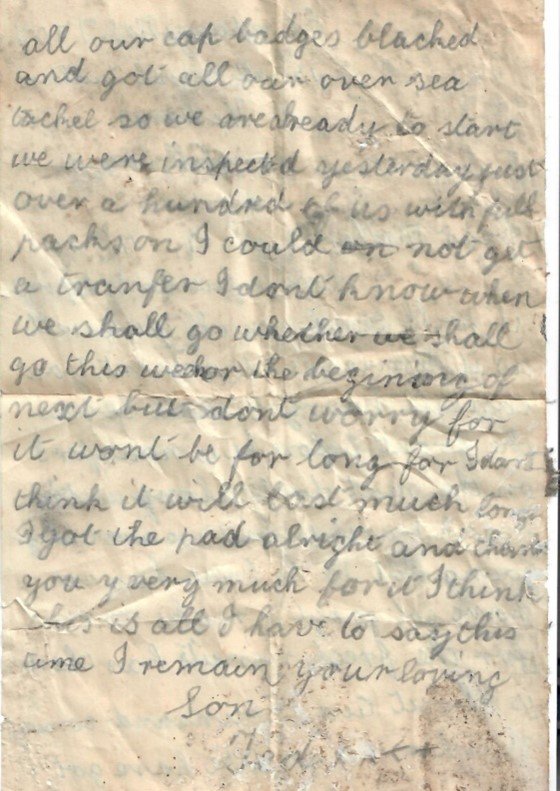 all our cap badges blacked
and got all our over sea
tackel so we are already to start
we were inspectd yesterday just
over a hundred of us with full
packs on I could on not get
a tranfer I dont know when
we shall go whether we shall
go this week or the begining of
next but dont worry for
it wont be for long for I dont
think it will last much longer
I got the pad alright and thank
you y very much for it I think
this is all I have to say this
time I remain your loving
Son